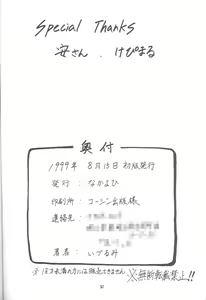 Special Thanks
安さん . けぴまる
奥付
1999年 8月15日 初版発行
発行 : なかよひ
印刷所 : コーシン出版様
連絡先 :
著者 : いづるみ
※ 18才未満の方には販売できません
※無断転載禁止!!